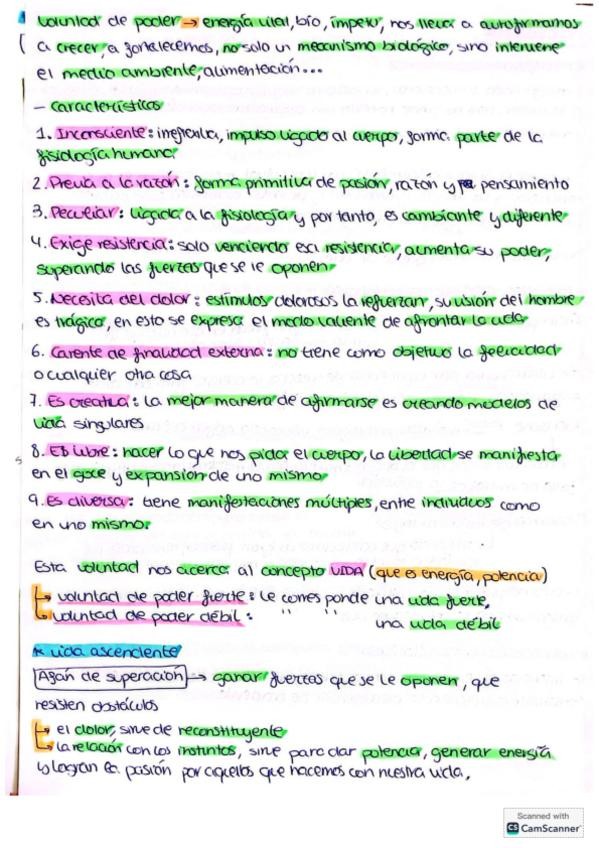 voluntad de poder → energía vital, bío, ímpetu, nos lleva a autofirmarnos
a crecer, a fortalecernos, no solo un mecanismo biológico, sino interviene
el medio ambiente, alimentación...
- Características
1. Inconsciente: irreflexiva, impulso ligado al cuerpo, forma parte de la
fisiología humana
2. Previa a la razón: forma primitiva de pasión, razón y pensamiento
3. Peculiar: ligada a la fisiología y por tanto, es cambiante y diferente
4. Exige resistencia: solo venciendo esa resistencia, aumenta su poder,
superando las fuerzas que se le oponen
5. Necesita del dolor: estímulos dolorosos la refuerzan, su visión del hombre
es trágica, en esto se expresa el modo valiente de afrontar la vida
6. Carente de finalidad externa: no tiene como objetivo la felicidad
o cualquier otra cosa
7. Es creativa: la mejor manera de afirmarse es creando modelos de
vida singulares
8. Es libre: hacer lo que nos pida el cuerpo, la libertad se manifiesta
en el goce y expansión de uno mismo
9. Es diversa: tiene manifestaciones múltiples, entre individuos como
en uno mismo.
Esta voluntad nos acerca al concepto VIDA (que es energía, potencia)
↳ voluntad de poder fuerte: le corresponde una vida fuerte,
↳ voluntad de poder débil: " " una vida débil
* vida ascendente
Afán de superación → ganar fuerzas que se le oponen, que
resisten obstáculos
↳ el dolor, sirve de reconstituyente
↳ la relación con los instintos, sirve para dar potencia, generar energía
y logran la pasión por aquellos que hacemos con nuestra vida,
Scanned with
CS CamScanner